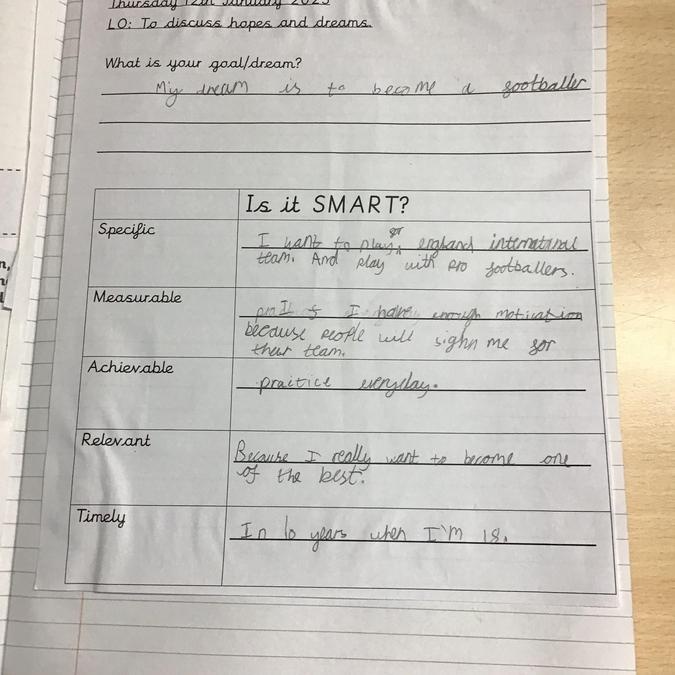 Thursday 12th January 2023
LO: To discuss hopes and dreams.
What is your goal/dream?
My dream is to become a footballer
Is it SMART?
Specific
for
I want to play england internatinal
team. And play with pro footballers.
Measurable
If I have enough motivation
because people will sighn me for
their team.
Achievable
praitice everyday.
Relevant
Because I really want to become one
of the best.
Timely
In 10 years when I'M 18.